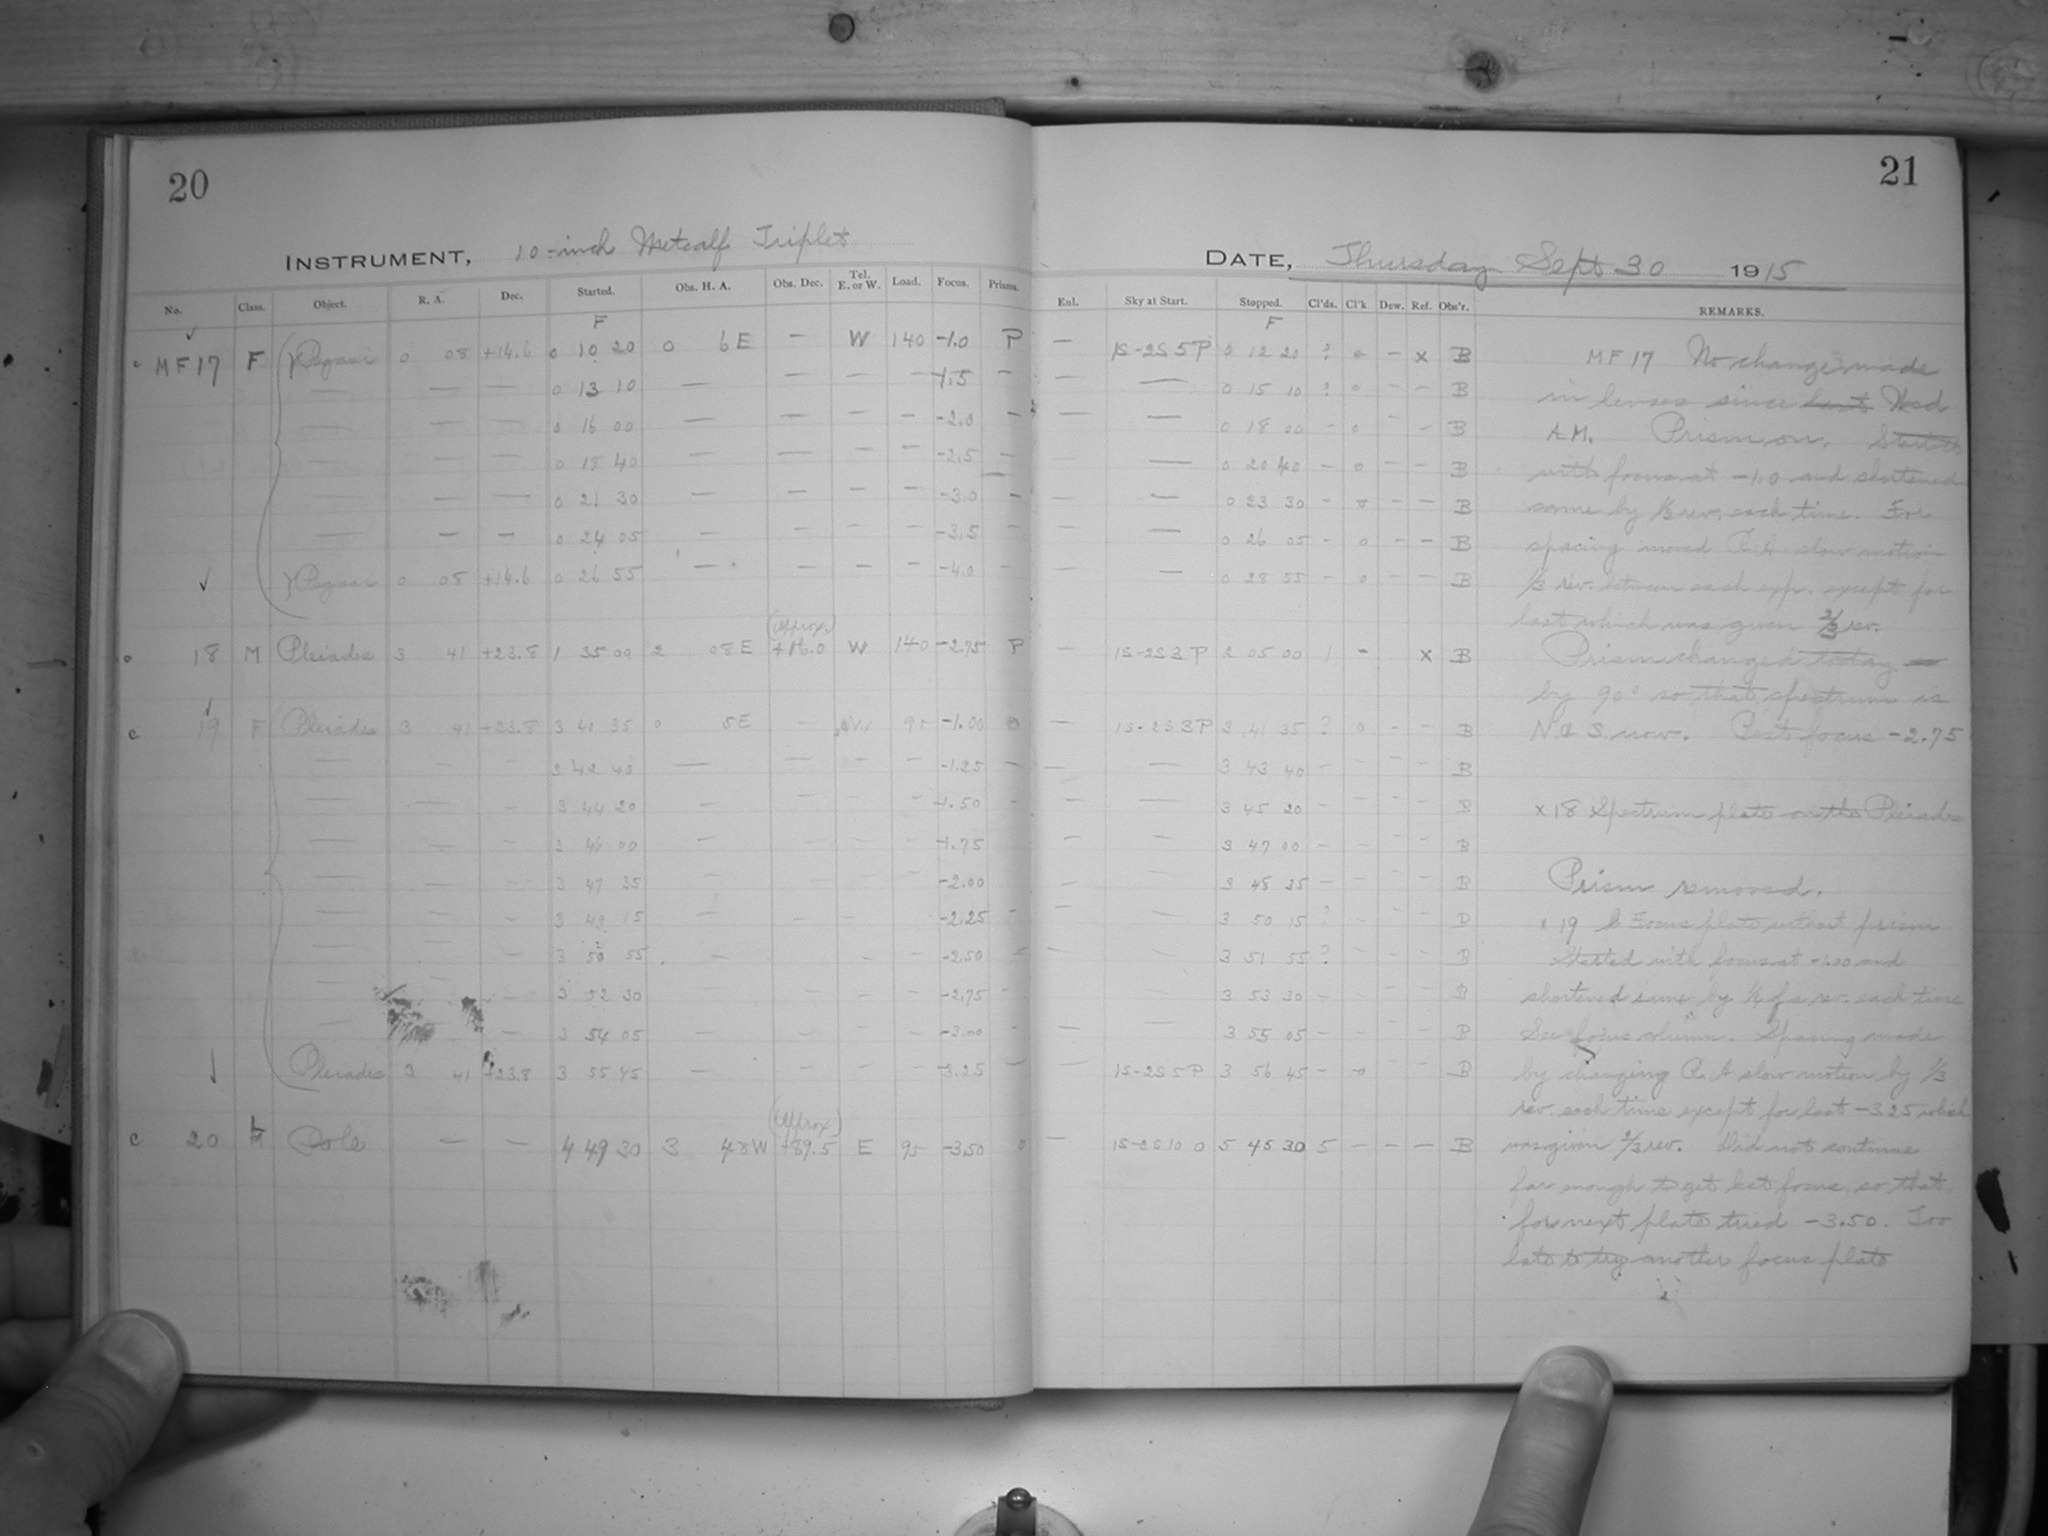 20
INSTRUMENT, 10-inch Metcalf Triplet
No. Class. Object. R. A. Dec. Started. Obs. H. A. Obs. Dec. Tel. E. or W. Load. Focus. Prisms.
F
c MF17 F γ Pegasi 0 08 +14.6 0 10 20 0 6E — W 140 -1.0 P
— — — 0 13 10 — — — — -1.5 —
— — — 0 16 00 — — — — -2.0 —
— — — 0 18 40 — — — — -2.5 —
— — — 0 21 30 — — — — -3.0 —
— — — 0 24 05 — — — — -3.5 —
γ Pegasi 0 08 +14.6 0 26 55 — — — — -4.0 —
(approx)
o 18 M Pleiades 3 41 +23.8 1 35 00 2 08E +16.0 W 140 -2.75 P
c 19 F Pleiades 3 41 +23.8 3 40 35 0 5E — W 95 -1.00 0
— — — 3 42 40 — — — — -1.25 —
— — — 3 44 20 — — — -1.50 —
— — — 3 46 00 — -1.75
— — — 3 47 35 — -2.00
— — — 3 49 15 — — — -2.25 —
— — — 3 50 55 — — — -2.50 —
— — — 3 52 30 — — — — -2.75 —
— — 3 54 05 — — — — -3.00 —
Pleiades 3 41 +23.8 3 55 45 — — — — -3.25 —
(approx)
c 20 Pole — — 4 49 30 3 48W +89.5 E 95 -3.50 0
21
DATE, Thursday Sept 30 1915
Enl. Sky at Start. Stopped. Cl'ds. Cl'k Dew. Ref. Obs'r. REMARKS.
F
— 1S-2S 5P 0 12 20 ? o — x B
— — 0 15 10 ? o — — B
— — 0 18 00 — o — B
— 0 20 40 — o — — B
— 0 23 30 — o — — B
— — 0 26 05 — o — — B
— — 0 28 55 — o — — B
— 1S-2S 3P 2 05 00 1 — x B
— 1S-2S 3P 3 41 35 ? o — — B
— — 3 43 40 — — — — B
— — 3 45 20 — — — — B
— — 3 47 00 — — — — B
— 3 48 35 — — — — B
— — 3 50 15 ? — — — B
— 3 51 55 ? — — — B
— 3 53 30 — — — — B
— — 3 55 05 — — — — B
— 1S-2S 5P 3 56 45 — o — — B
— 1S-2S 10 0 5 45 30 5 — — — B
MF 17 No change made
in lenses since last Wed
A.M. Prism on. Started
with focus at -1.0 and shortened
same by ½ rev. each time. For
spacing moved R.A. slow motion
⅓ rev. between each exp. except for
last which was given ⅔ rev.
Prism changed today
by 90° so that spectrum is
N. & S. now. Best focus -2.75
x 18 Spectrum plate on the Pleiades
Prism removed.
x 19 Focus plate without prism
Started with focus at -1.00 and
shortened same by ¼ of a rev. each time
See focus column. Spacing made
by changing R.A. slow motion by ⅓
rev. each time except for last -3.25 which
was given ⅔ rev. Did not continue
far enough to get best focus, so that
for next plate tried -3.50. Too
late to try another focus plate